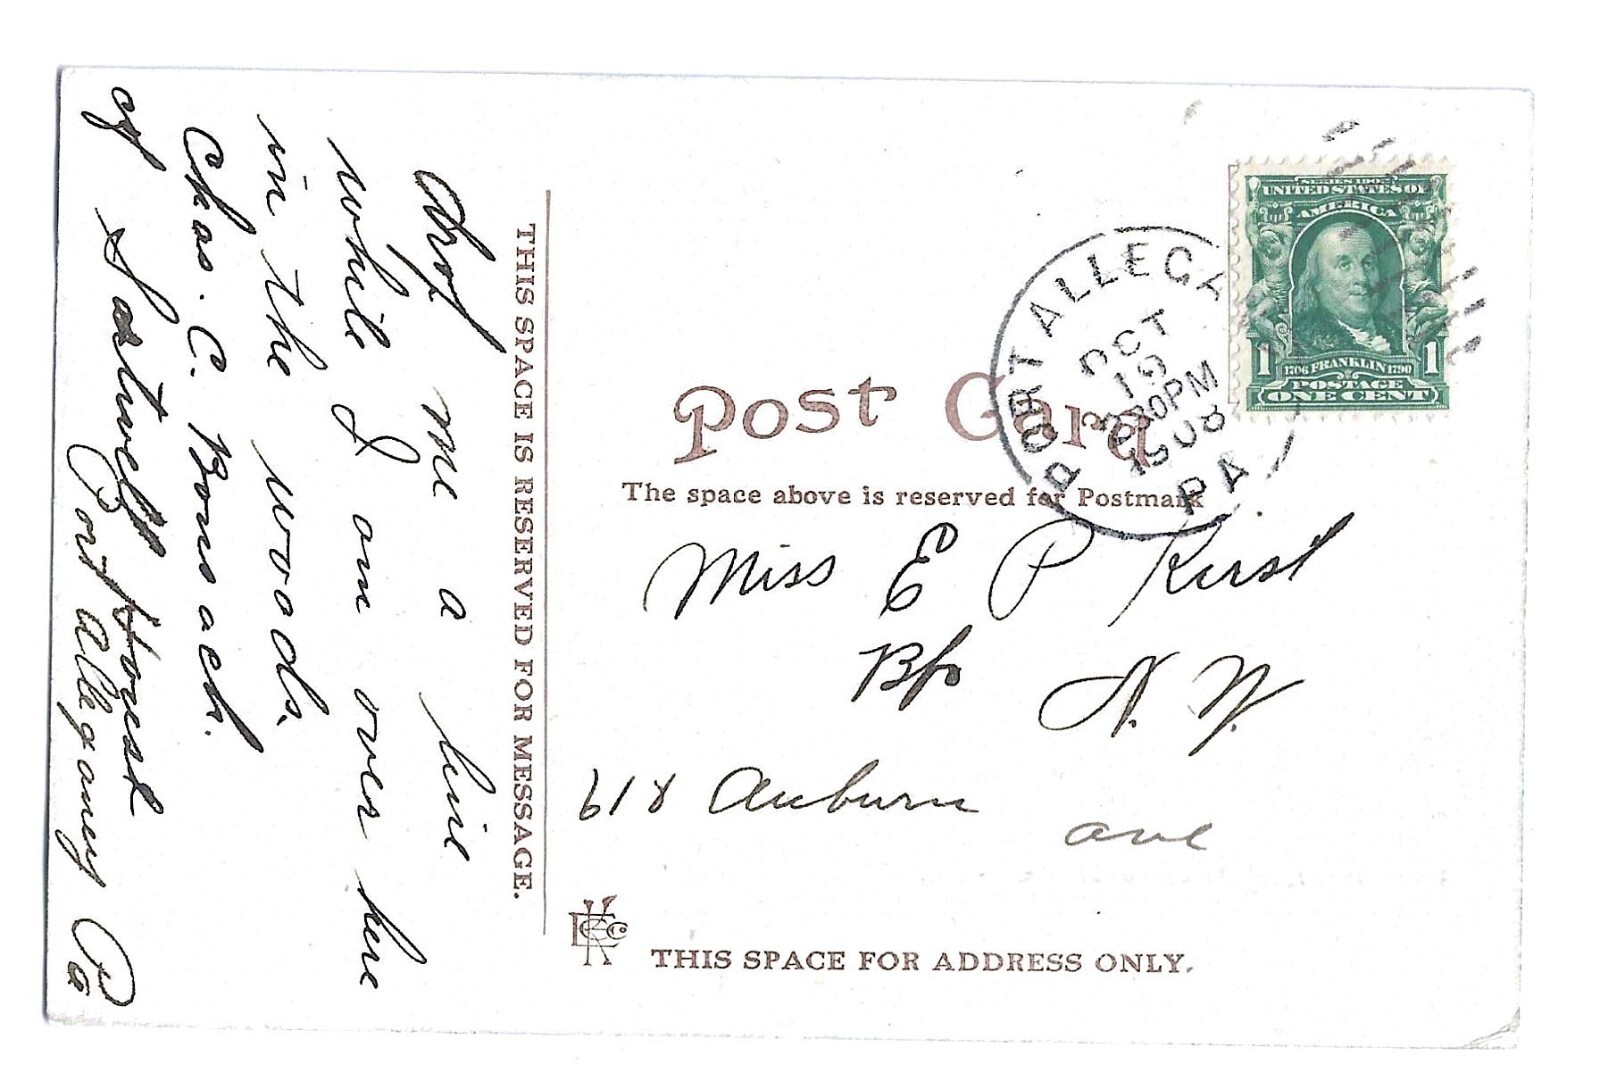 Drop me a line
while I am over here
in the woods.
Chas. C. Bonsack.
of Sartwell House
Port Allegany Pa
THIS SPACE IS RESERVED FOR MESSAGE.
Post Card
The space above is reserved for Postmark
PORT ALLEGA
PA
OCT
19
30PM
1908
SERIES 1902
UNITED STATES OF
AMERICA
1 1
1706 FRANKLIN 1790
POSTAGE
ONE CENT
Miss E P Kurst
Bp N. Y.
618 Auburn
ave
THIS SPACE FOR ADDRESS ONLY.